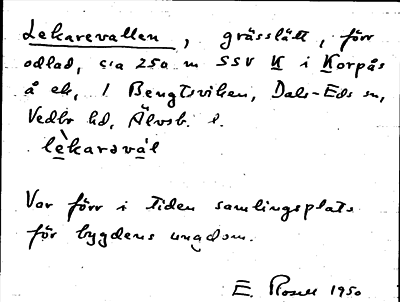 Lekarevallen, grässlätt, förr
odlad, c:a 250 m SSV K i Korpås
å ek, / Bengtsviken, Dals-Eds sn,
Vedbo hd, Älvsb. l.
lèkaravál
Var förr i tiden samlingsplats
för bygdens ungdom.
E. Rosell 1950